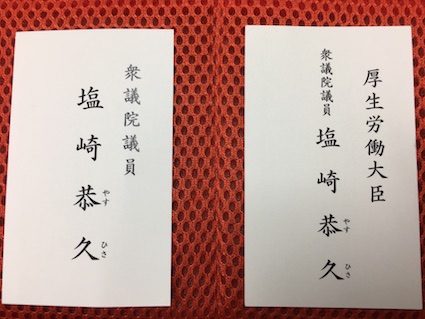 衆議院議員
塩崎恭久
やす
ひさ
厚生労働大臣
衆議院議員
塩崎恭久
やす
ひさ